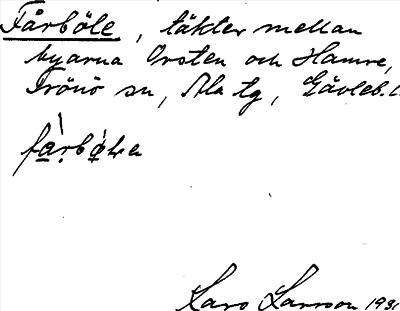 Fårböle, täkter mellan
byarna Orsten och Hamre,
Trönö sn, Ala tg, Gävleb.l.
Lars Larsson 193